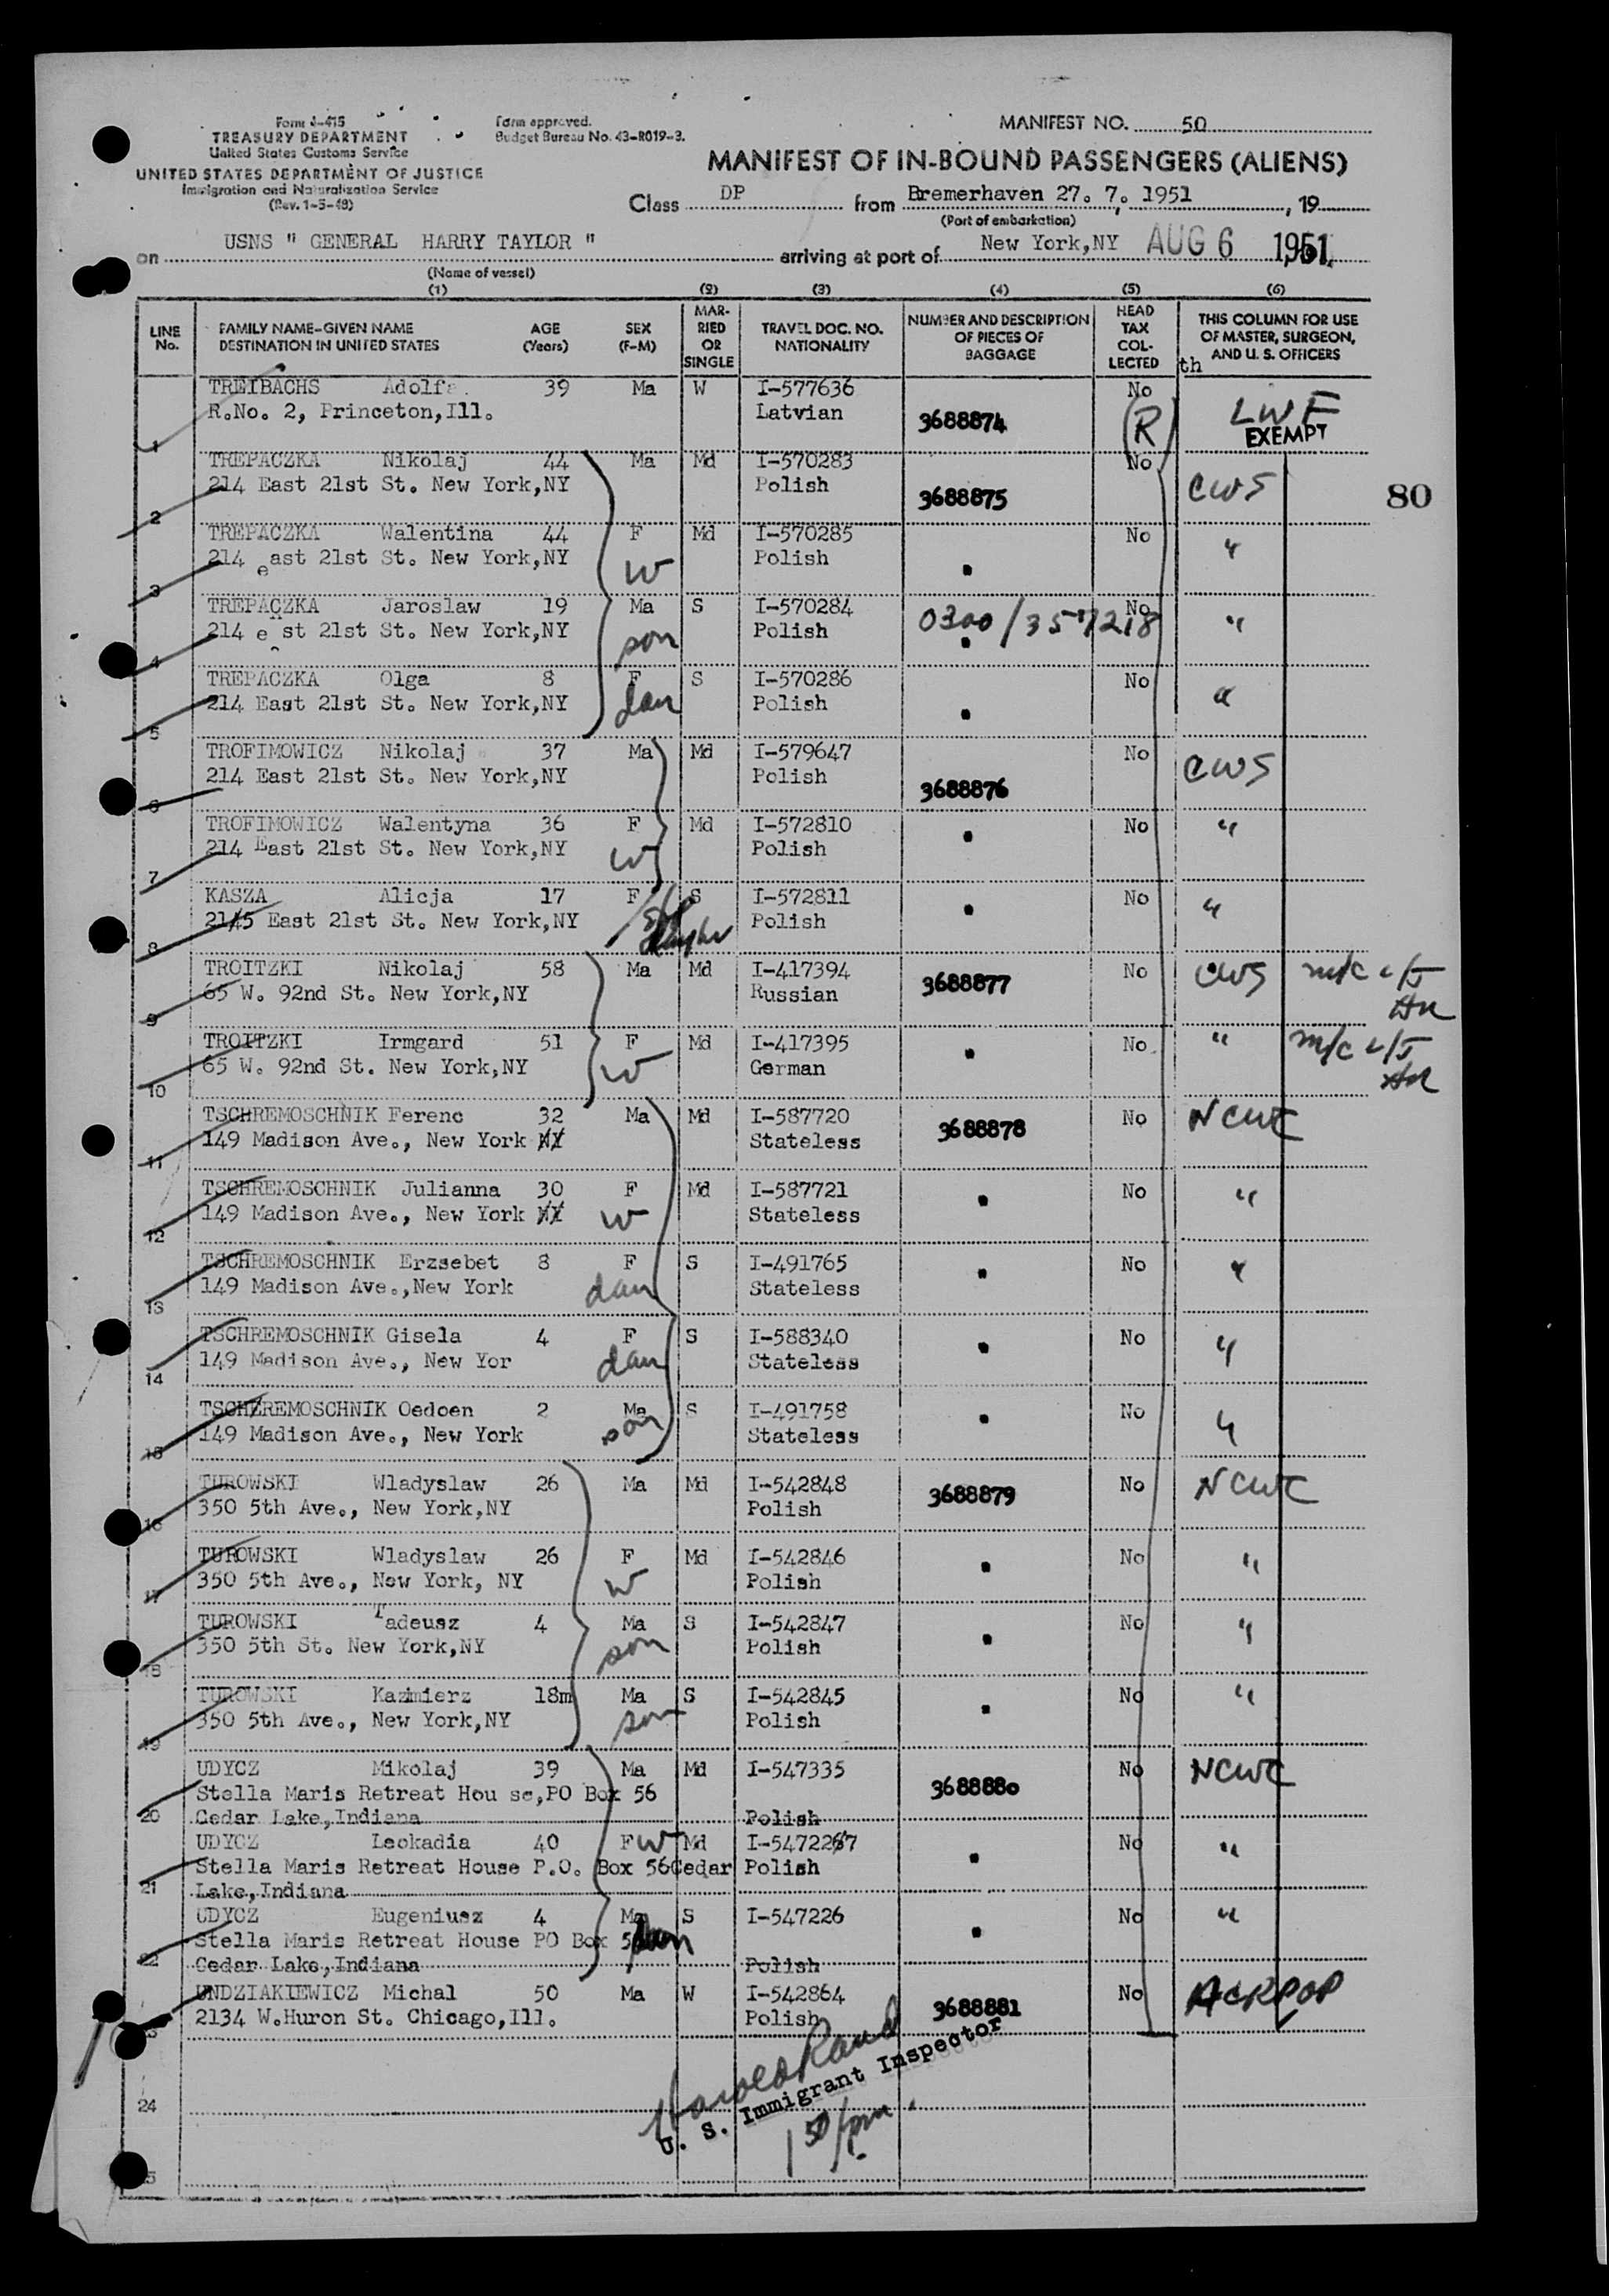 Form I-415
TREASURY DEPARTMENT
United States Customs Service
UNITED STATES DEPARTMENT OF JUSTICE
Immigration and Naturalization Service
(Rev. 1-5-48)
Form approved.
Budget Bureau No. 43-R019-3.
MANIFEST NO. 50
MANIFEST OF IN-BOUND PASSENGERS (ALIENS)
Class DP from Bremerhaven 27. 7. 1951, 19
(Port of embarkation)
on USNS " GENERAL HARRY TAYLOR " arriving at port of New York,NY AUG 6 1951
(Name of vessel)
(1) (2) (3) (4) (5) (6)
LINE No. FAMILY NAME-GIVEN NAME DESTINATION IN UNITED STATES AGE (Years) SEX (F-M) MARRIED OR SINGLE TRAVEL DOC. NO. NATIONALITY NUMBER AND DESCRIPTION OF PIECES OF BAGGAGE HEAD TAX COLLECTED THIS COLUMN FOR USE OF MASTER, SURGEON, AND U. S. OFFICERS
th
TREIBACHS Adolfs 39 Ma W I-577636 No LWF
R.No. 2, Princeton,Ill. Latvian 3688874 (R) EXEMPT
1
TREPACZKA Nikolaj 44 Ma Md I-570283 No CWS
214 East 21st St. New York,NY Polish 3688875 80
2
TREPACZKA Walentina 44 F Md I-570285 No "
214 east 21st St. New York,NY W Polish "
3
TREPACZKA Jaroslaw 19 Ma S I-570284 0300/357218 No "
214 e st 21st St. New York,NY son Polish "
4
TREPACZKA Olga 8 F S I-570286 No "
214 East 21st St. New York,NY dau Polish "
5
TROFIMOWICZ Nikolaj 37 Ma Md I-579647 No CWS
214 East 21st St. New York,NY Polish 3688876
6
TROFIMOWICZ Walentyna 36 F Md I-572810 " No "
214 East 21st St. New York,NY W Polish
7
KASZA Alicja 17 F S I-572811 " No "
21/5 East 21st St. New York,NY step daughter Polish
8
TROITZKI Nikolaj 58 Ma Md I-417394 3688877 No CWS m/c
65 W. 92nd St. New York,NY Russian
9
TROITZKI Irmgard 51 F Md I-417395 " No " m/c
65 W. 92nd St. New York,NY W German
10
TSCHREMOSCHNIK Ferenc 32 Ma Md I-587720 3688878 No NCWC
149 Madison Ave., New York NY Stateless
11
TSCHREMOSCHNIK Julianna 30 F Md I-587721 " No "
149 Madison Ave., New York NY W Stateless
12
TSCHREMOSCHNIK Erzsebet 8 F S I-491765 " No "
149 Madison Ave.,New York dau Stateless
13
TSCHREMOSCHNIK Gisela 4 F S I-588340 " No "
149 Madison Ave., New Yor dau Stateless
14
TSCHREMOSCHNIK Oedoen 2 Ma S I-491758 " No "
149 Madison Ave., New York son Stateless
15
TUROWSKI Wladyslaw 26 Ma Md I-542848 3688879 No NCWC
350 5th Ave., New York,NY Polish
16
TUROWSKI Wladyslaw 26 F Md I-542846 " No "
350 5th Ave., New York, NY W Polish
17
TUROWSKI Tadeusz 4 Ma S I-542847 " No "
350 5th St. New York,NY son Polish
18
TUROWSKI Kazmierz 18m Ma S I-542845 " No "
350 5th Ave., New York,NY son Polish
19
UDYCZ Mikolaj 39 Ma Md I-547335 3688880 No NCWC
Stella Maris Retreat Hou se,PO Box 56
20 Cedar Lake,Indiana Polish
UDYCZ Leokadia 40 F W Md I-547227 " No "
Stella Maris Retreat House P.O. Box 56Cedar Polish
21 Lake,Indiana
UDYCZ Eugeniusz 4 Ma S I-547226 " No "
Stella Maris Retreat House PO Box 5
22 Cedar Lake,Indiana Polish
UNDZIAKIEWICZ Michal 50 Ma W I-542864 3688881 No ACRPOP
2134 W.Huron St. Chicago,Ill. Polish
23
Harold Rand
U. S. Immigrant Inspector
24
1 50/pm.
25